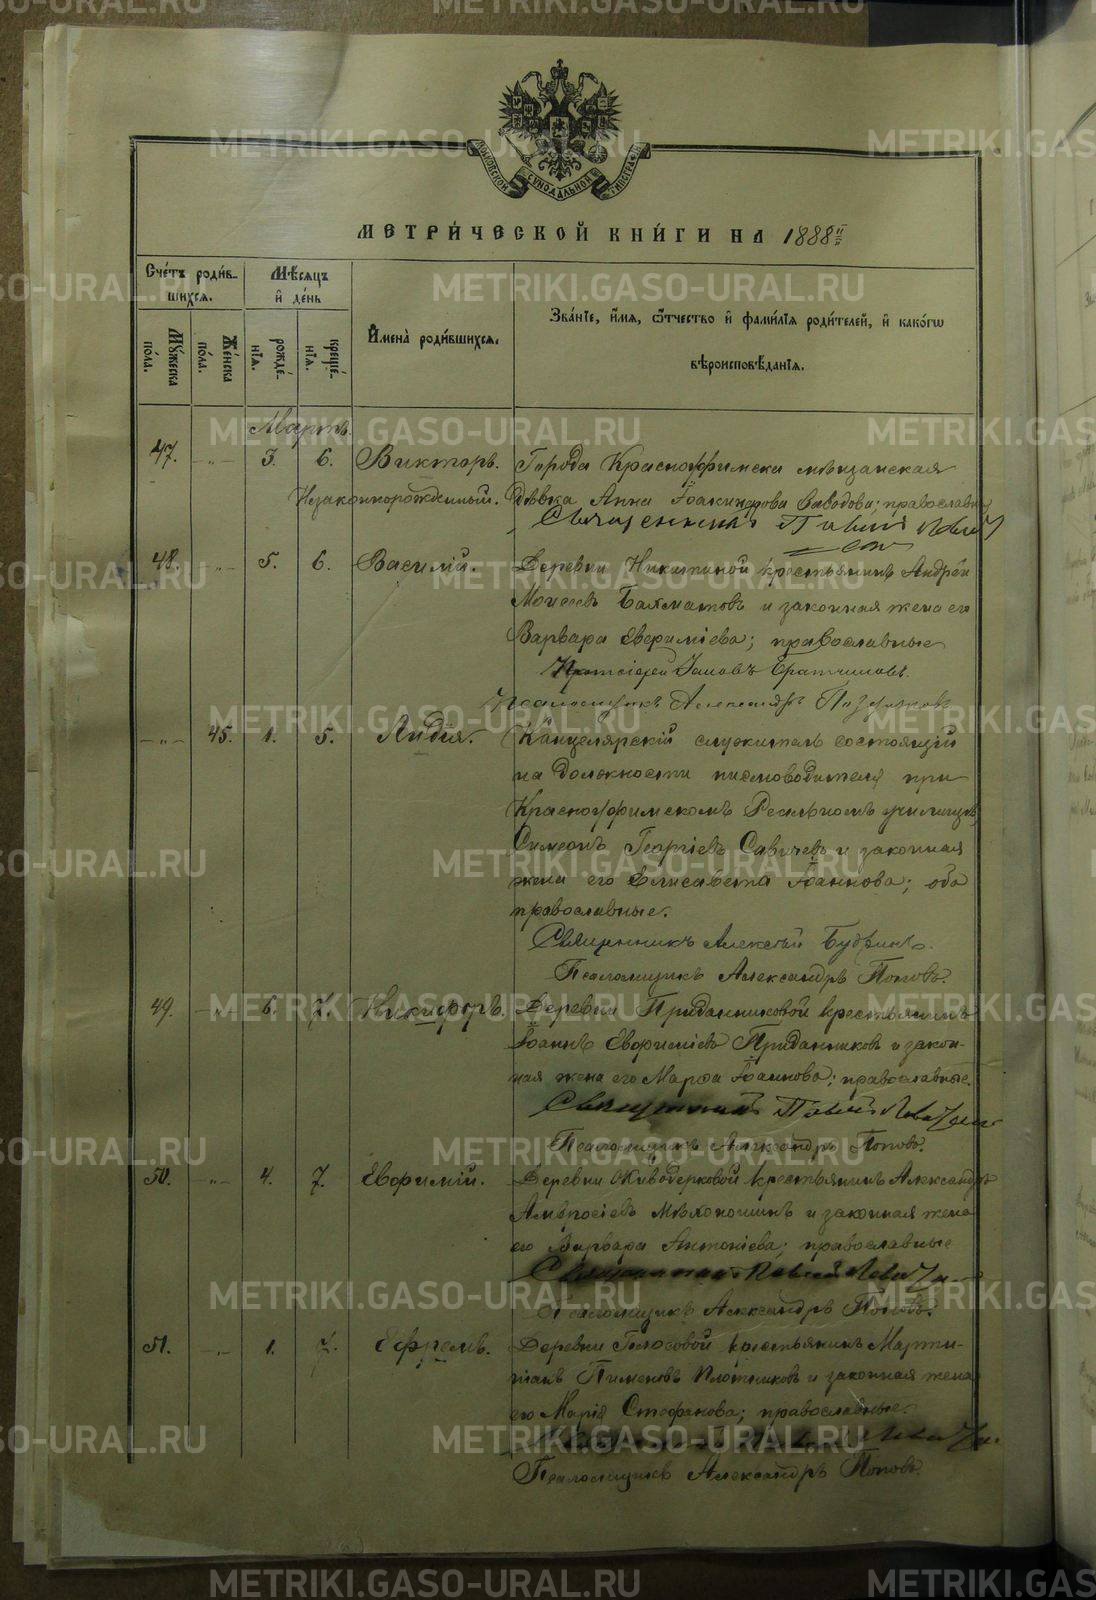 METRIKI.GASO-URAL.RU
МОСКОВСКОЙ СѴНОДАЛЬНОЙ ТИПОГРАФІИ
МЕТРИ́ЧЕСКОЙ КНИ́ГИ НА 1888 й
Сче́тъ роди́в- шихся.
Мѣ́сяцъ и де́нь
Му́жеска по́ла.
Же́нска по́ла.
рожде́- нія.
креще́- нія.
Имена̀ роди́вшихся.
Зва́ніе, и́мя, ѻ́тчество и фами́лія роди́телей, и како́гѡ
вѣроисповѣ́данія.
Мартъ
47. -„- 3. 6. Викторъ. Города Красноуфимска мѣщанская
Незаконнорожденный. дѣвка Анна Іоакинфова Заводова; православна
Священникъ Павелъ
48. -„- 5. 6. Василій. Деревни Никитиной крестьянинъ Андрей
Моисеевъ Бахматовъ и законная жена его
Варвара Евфиміева; православные
Протоіерей
Псаломщикъ Александръ
-„- 45. 1. 5. Лидія. Канцелярскій служитель состоящій
на должности писмоводителя при
Красноуфимскомъ Реальномъ училищѣ
Симеонъ Георгіевъ Савичевъ и законная
жена его Елисавета Іоаннова; оба
православные.
Священникъ Алексѣй Будринъ.
Псаломщикъ Александръ Поповъ.
49. -„- 6. 7. Никифоръ. Деревни Приданниковой крестьянинъ
Іоаннъ Евфиміевъ Приданниковъ и закон-
ная жена его Марѳа Іоаннова; православные.
Священникъ Павелъ
Псаломщикъ Александръ Поповъ.
50. -„- 4. 7. Евфимій. Деревни Живодерковой крестьянинъ Александръ
Амвросіевъ и законная жена
его Варвара Антоніева; православные
Священникъ Павелъ
Псаломщикъ Александръ Поповъ.
51. -„- 1. 7. Ефремъ. Деревни Голосовой крестьянинъ Марти-
ніанъ Пименовъ Плотниковъ и законная жена
его Марія Стефанова; православные.
Священникъ Павелъ
Псаломщикъ Александръ Поповъ.